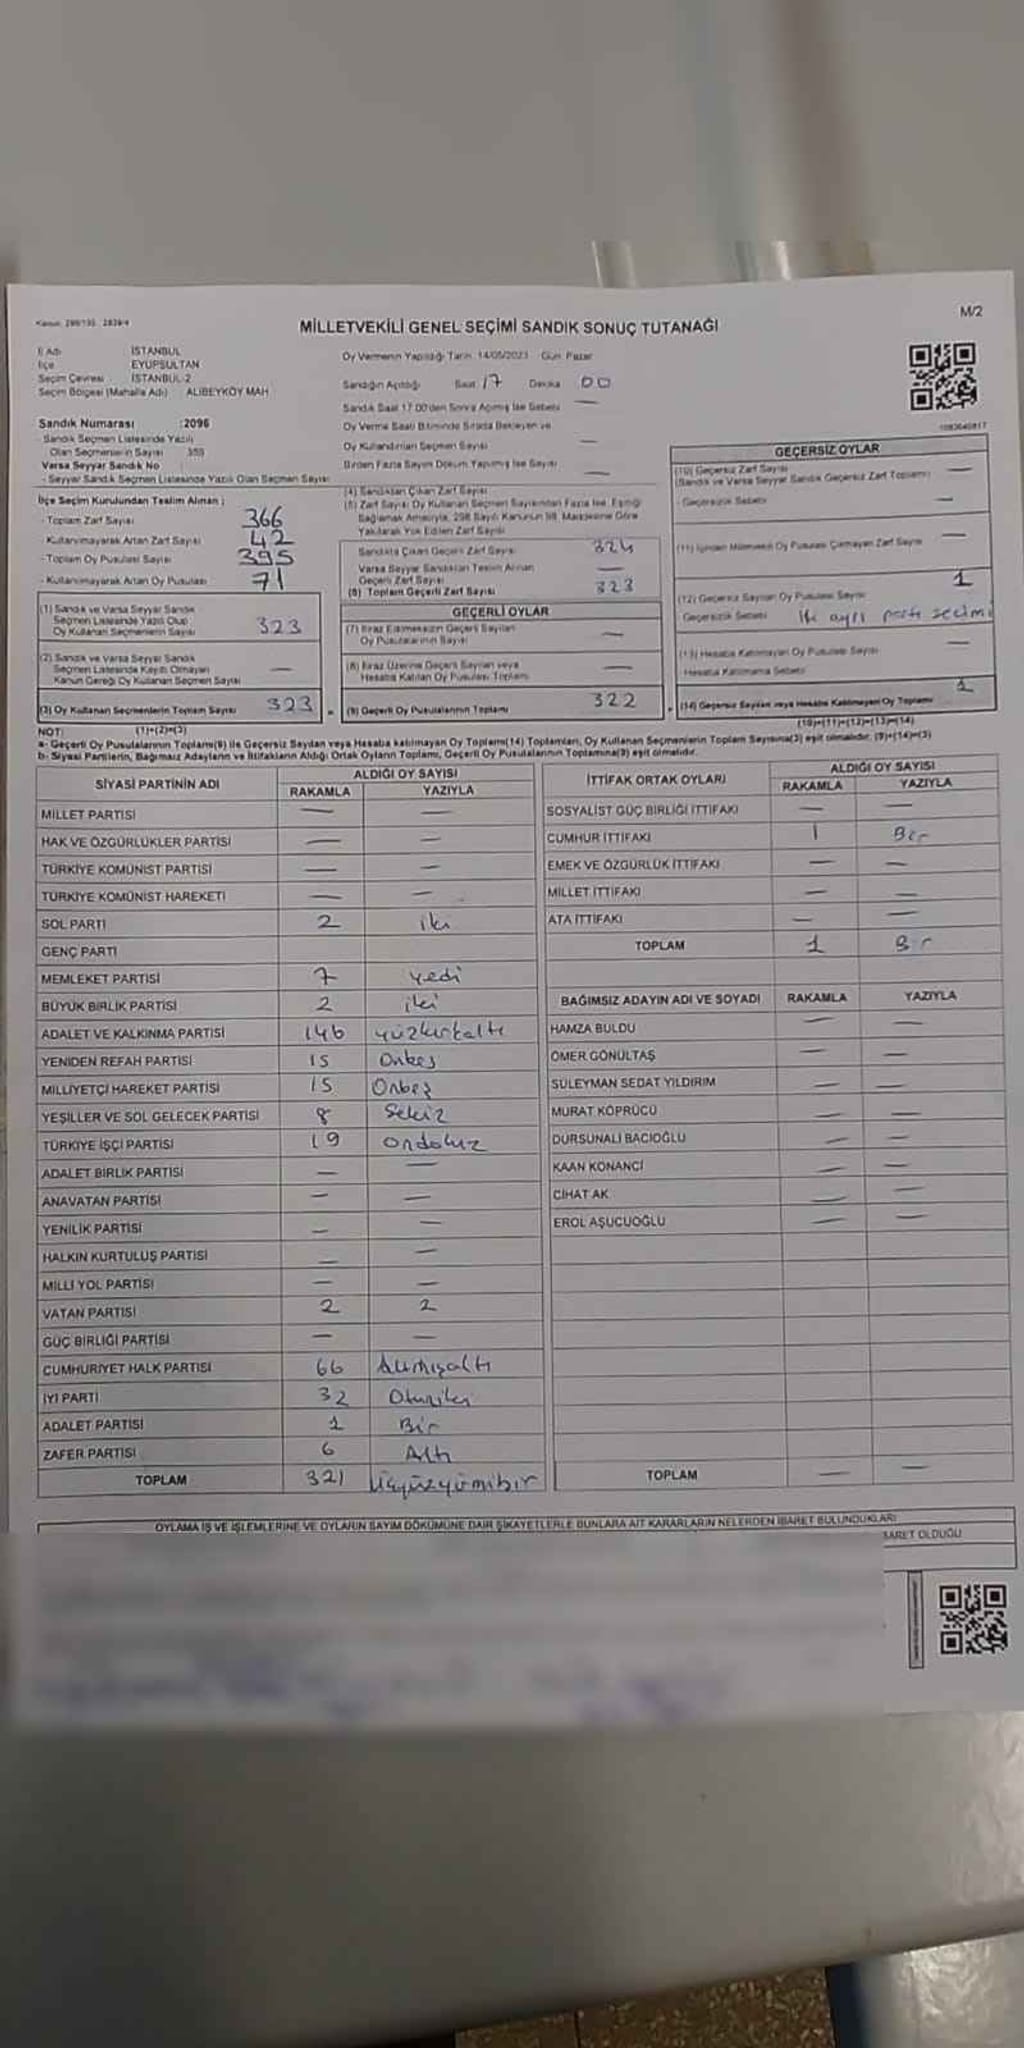 M/2
MİLLETVEKİLİ GENEL SEÇİMİ SANDIK SONUÇ TUTANAĞI
İl Adı İSTANBUL
İlçe EYÜPSULTAN
Seçim Çevresi İSTANBUL-2
Seçim Bölgesi (Mahalle Adı) ALİBEYKÖY MAH
Oy Vermenin Yapıldığı Tarih 14/05/2023 Gün Pazar
Sandığın Açıldığı Saat 17 Dakika 00
Sandık Saat 17.00'den Sonra Açılmış İse Sebebi —
Oy Verme Saati Bitiminde Sırada Bekleyen ve
Oy Kullandırılan Seçmen Sayısı —
Birden Fazla Sayım Döküm Yapılmış İse Sayısı —
Sandık Numarası :2096
Sandık Seçmen Listesinde Yazılı
Olan Seçmenlerin Sayısı
Varsa Seyyar Sandık No
- Seyyar Sandık Seçmen Listesinde Yazılı Olan Seçmen Sayısı
İlçe Seçim Kurulundan Teslim Alınan ;
- Toplam Zarf Sayısı 366
- Kullanılmayarak Artan Zarf Sayısı 42
- Toplam Oy Pusulası Sayısı 395
- Kullanılmayarak Artan Oy Pusulası 71
(1) Sandık ve Varsa Seyyar Sandık
Seçmen Listesinde Yazılı Olup
Oy Kullanan Seçmenlerin Sayısı 323
(2) Sandık ve Varsa Seyyar Sandık
Seçmen Listesinde Kayıtlı Olmayan
Kanun Gereği Oy Kullanan Seçmen Sayısı —
(3) Oy Kullanan Seçmenlerin Toplam Sayısı 323
(4) Sandıktan Çıkan Zarf Sayısı
(5) Zarf Sayısı Oy Kullanan Seçmen Sayısından Fazla İse, Eşitliği
Sağlamak Amacıyla, 298 Sayılı Kanunun 98. Maddesine Göre
Yakılarak Yok Edilen Zarf Sayısı
Sandıkta Çıkan Geçerli Zarf Sayısı 324
Varsa Seyyar Sandıktan Teslim Alınan
Geçerli Zarf Sayısı —
(6) Toplam Geçerli Zarf Sayısı 323
GEÇERLİ OYLAR
(7) İtiraz Edilmeksizin Geçerli Sayılan
Oy Pusulalarının Sayısı —
(8) İtiraz Üzerine Geçerli Sayılan veya
Hesaba Katılan Oy Pusulası Toplamı —
(9) Geçerli Oy Pusulalarının Toplamı 322
GEÇERSİZ OYLAR
(10) Geçersiz Zarf Sayısı
(Sandık ve Varsa Seyyar Sandık Geçersiz Zarf Toplamı) —
Geçersizlik Sebebi —
(11) İçinden Milletvekili Oy Pusulası Çıkmayan Zarf Sayısı —
(12) Geçersiz Sayılan Oy Pusulası Sayısı 1
Geçersizlik Sebebi İki ayrı parti seçimi
(13) Hesaba Katılmayan Oy Pusulası Sayısı —
Hesaba Katılmama Sebebi
(14) Geçersiz Sayılan veya Hesaba Katılmayan Oy Toplamı 1
NOT: (1)+(2)=(3) (10)+(11)+(12)+(13)=(14)
a- Geçerli Oy Pusulalarının Toplamı(9) ile Geçersiz Sayılan veya Hesaba katılmayan Oy Toplamı(14) Toplamları, Oy Kullanan Seçmenlerin Toplam Sayısına(3) eşit olmalıdır. (9)+(14)=(3)
b- Siyasi Partilerin, Bağımsız Adayların ve İttifakların Aldığı Ortak Oyların Toplamı, Geçerli Oy Pusulalarının Toplamına(9) eşit olmalıdır.
SİYASİ PARTİNİN ADI ALDIĞI OY SAYISI
RAKAMLA YAZIYLA
MİLLET PARTİSİ — —
HAK VE ÖZGÜRLÜKLER PARTİSİ — —
TÜRKİYE KOMÜNİST PARTİSİ — —
TÜRKİYE KOMÜNİST HAREKETİ — —
SOL PARTİ 2 iki
GENÇ PARTİ
MEMLEKET PARTİSİ 7 yedi
BÜYÜK BİRLİK PARTİSİ 2 iki
ADALET VE KALKINMA PARTİSİ 146 yüzkırkaltı
YENİDEN REFAH PARTİSİ 15 Onbeş
MİLLİYETÇİ HAREKET PARTİSİ 15 Onbeş
YEŞİLLER VE SOL GELECEK PARTİSİ 8 Sekiz
TÜRKİYE İŞÇİ PARTİSİ 19 ondokuz
ADALET BİRLİK PARTİSİ — —
ANAVATAN PARTİSİ — —
YENİLİK PARTİSİ — —
HALKIN KURTULUŞ PARTİSİ — —
MİLLİ YOL PARTİSİ — —
VATAN PARTİSİ 2 2
GÜÇ BİRLİĞİ PARTİSİ — —
CUMHURİYET HALK PARTİSİ 66 Altmışaltı
İYİ PARTİ 32 Otuziki
ADALET PARTİSİ 1 Bir
ZAFER PARTİSİ 6 Altı
TOPLAM 321 Üçyüzyirmibir
İTTİFAK ORTAK OYLARI ALDIĞI OY SAYISI
RAKAMLA YAZIYLA
SOSYALİST GÜÇ BİRLİĞİ İTTİFAKI — —
CUMHUR İTTİFAKI 1 Bir
EMEK VE ÖZGÜRLÜK İTTİFAKI — —
MİLLET İTTİFAKI — —
ATA İTTİFAKI — —
TOPLAM 1 Bir
BAĞIMSIZ ADAYIN ADI VE SOYADI RAKAMLA YAZIYLA
HAMZA BULDU — —
ÖMER GÖNÜLTAŞ — —
SÜLEYMAN SEDAT YILDIRIM — —
MURAT KÖPRÜCÜ — —
DURSUNALİ BACIOĞLU — —
KAAN KONANCİ — —
CİHAT AK — —
EROL AŞUCUOĞLU — —
TOPLAM — —
OYLAMA İŞ VE İŞLEMLERİNE VE OYLARIN SAYIM DÖKÜMÜNE DAİR ŞİKAYETLERLE BUNLARA AİT KARARLARIN NELERDEN İBARET BULUNDUKLARI
BARET OLDUĞU